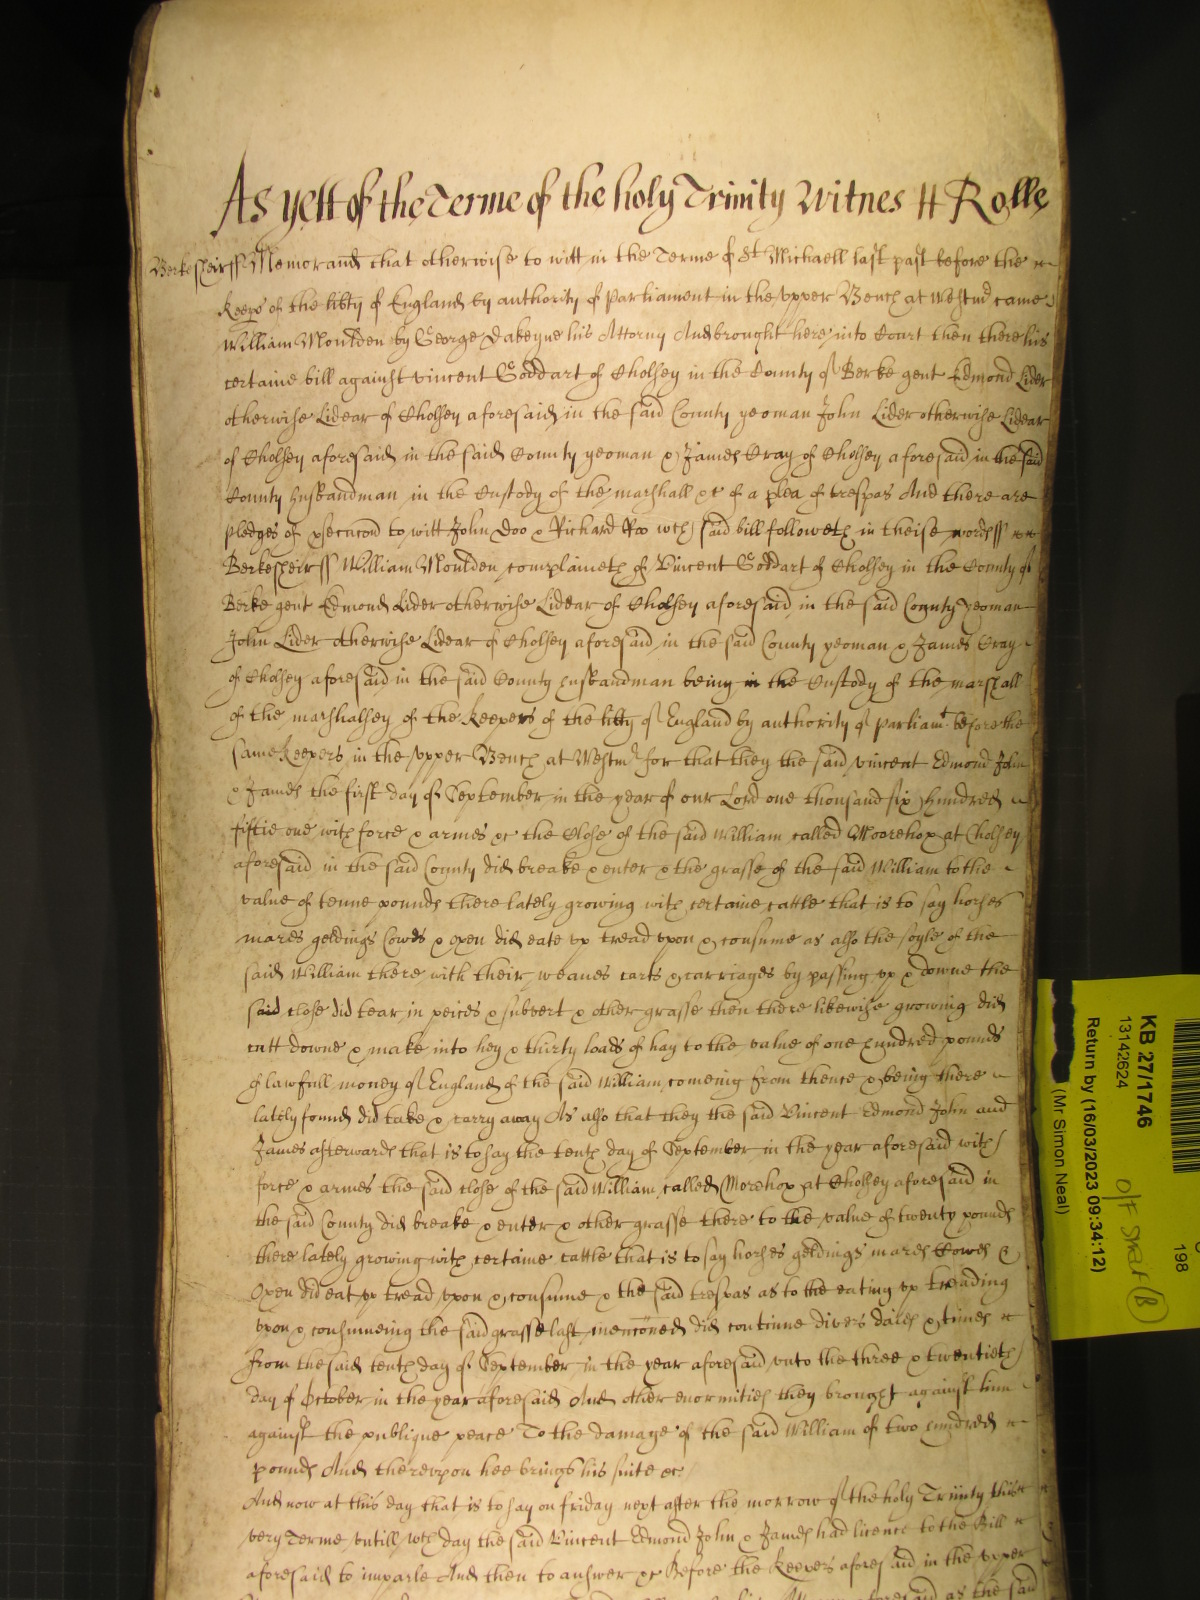 As yett of the Terme of the holy Trinity Witnes H Rolle
Berkesheirss Memorand that otherwise to witt in the Terme of St Michaell last past before the
Keeps of the libty of England by authority of Parliament in the vpper Bench at Westmd came
William Moulden by George Dabeyne his Attorny And brought here into Court then there his
certaine bill against vincent Goddart of Cholsey in the County of Berke gent Edmond Lider
otherwise Lidear of Cholsey aforesaid in the said County yeoman John Lider otherwise Lidear
of Cholsey aforesaid in the said County yeoman & James Cray of Cholsey aforesaid in the said
County husbandman in the Custody of the marshall &c of a plea of trespas And there are
pledges of psecucon to witt John Doo & Richard Roo wch said bill followeth in theise wordss
Berkesheirss William Moulden complaineth of Vincent Goddart of Cholsey in the County of
Berke gent Edmond Lider otherwise Lidear of Cholsey aforesaid in the said County yeoman
John Lider otherwise Lidear of Cholsey aforesaid in the said County yeoman & James Cray
of Cholsey aforesaid in the said County husbandman being in the Custody of the marshall
of the marshalsey of the Keepers of the libty of England by authority of parliamt before the
same Keepers in the vpper Bench at Westmd for that they the said vincent Edmond John
& James the first day of September in the year of our Lord one thousand six hundred
fiftie one with force & armes &c the Close of the said William called Moorehop at Cholsey
aforesaid in the said County did breake & enter & the grasse of the said William to the
value of tenne pounds there lately growing with certaine cattle that is to say horses
mares geldings Cowes & oxen did eate vp tread vpon & consume as also the soyle of the
said William there with their weanes carts & carriages by passing vp & downe the
said close did tear in peices & subvert & other grasse then there likewise growing did
cutt downe & make into hey & thirty loads of hay to the value of one hundred pounds
of lawfull money of England of the said William comeing from thence & being there
lately found did take & carry away As also that they the said Vincent Edmond John and
James afterwards that is to say the tenth day of September in the year aforesaid with
force & armes the said close of the said William called Morehop at Cholsey aforesaid in
the said County did breake & enter & other grasse there to the value of twenty pounds
there lately growing with certaine cattle that is to say horses geldings mares Cowes &
Oxen did eat vp tread vpon & consume & the said trespas as to the eating vp treading
vpon & consumeing the said grasse last menconed did continue divers daies & times
from the said tenth day of September in the year aforesaid vnto the three & twentieth
day of October in the year aforesaid And other enormities they brought against him
against the publique peace To the damage of the said William of two hundred
pounds And therevpon hee brings his suite &c
And now at this day that is to say on friday next after the morrow of the holy Trinity this
very Terme vntill wch day the said Vincent Edmond John & James had licence to the Bill
aforesaid to imparle And then to answer &c Before the Keepers aforesaid in the vpper
aforesaid as the said
KB 27/1746
13142624
Return by (16/03/2023 09:34:12)
(Mr Simon Neal)
198